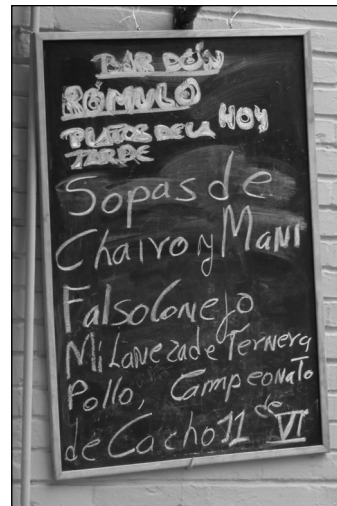 BAR DON
RÓMULO
PLATOS DE LA HOY
TARDE
Sopas de
Chairo y Mani
Falso Conejo
Milaneza de Ternera
Pollo, Campeonato
de Cacho 11 de VI